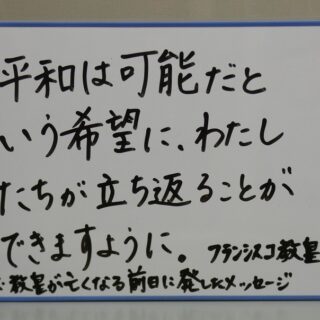 平和は可能だと
いう希望に、わたし
たちが立ち返ることが
できますように。 フランシスコ教皇
教皇が亡くなる前日に発したメッセージ